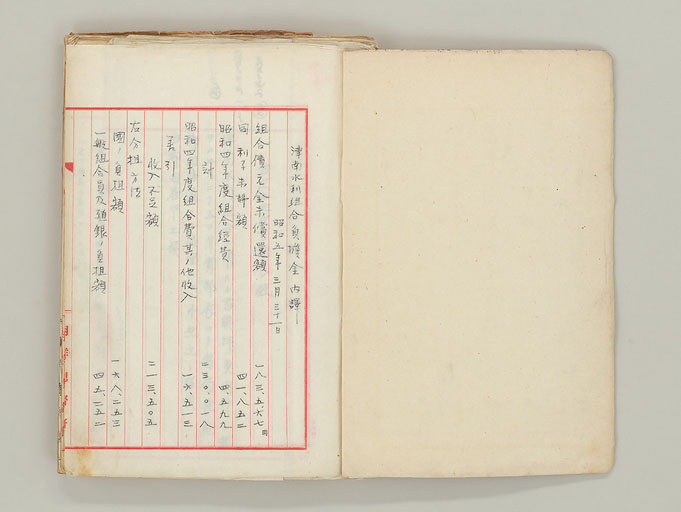 津南水利組合負擔金内譯
昭和五年三月三十一日
組合債元金未償還額 一八三、五六七円
同利子未拂額 四一、八五二
昭和四年度組合經費 四、五九九
計 二三〇、〇一八
昭和四年度組合費其ノ他收入 一六、五一三
差引
收入不足額 二一三、五〇五
右分担方法
國ノ負担額 一六八、二五三
一般組合員及殖銀ノ負担額 四五、二五二